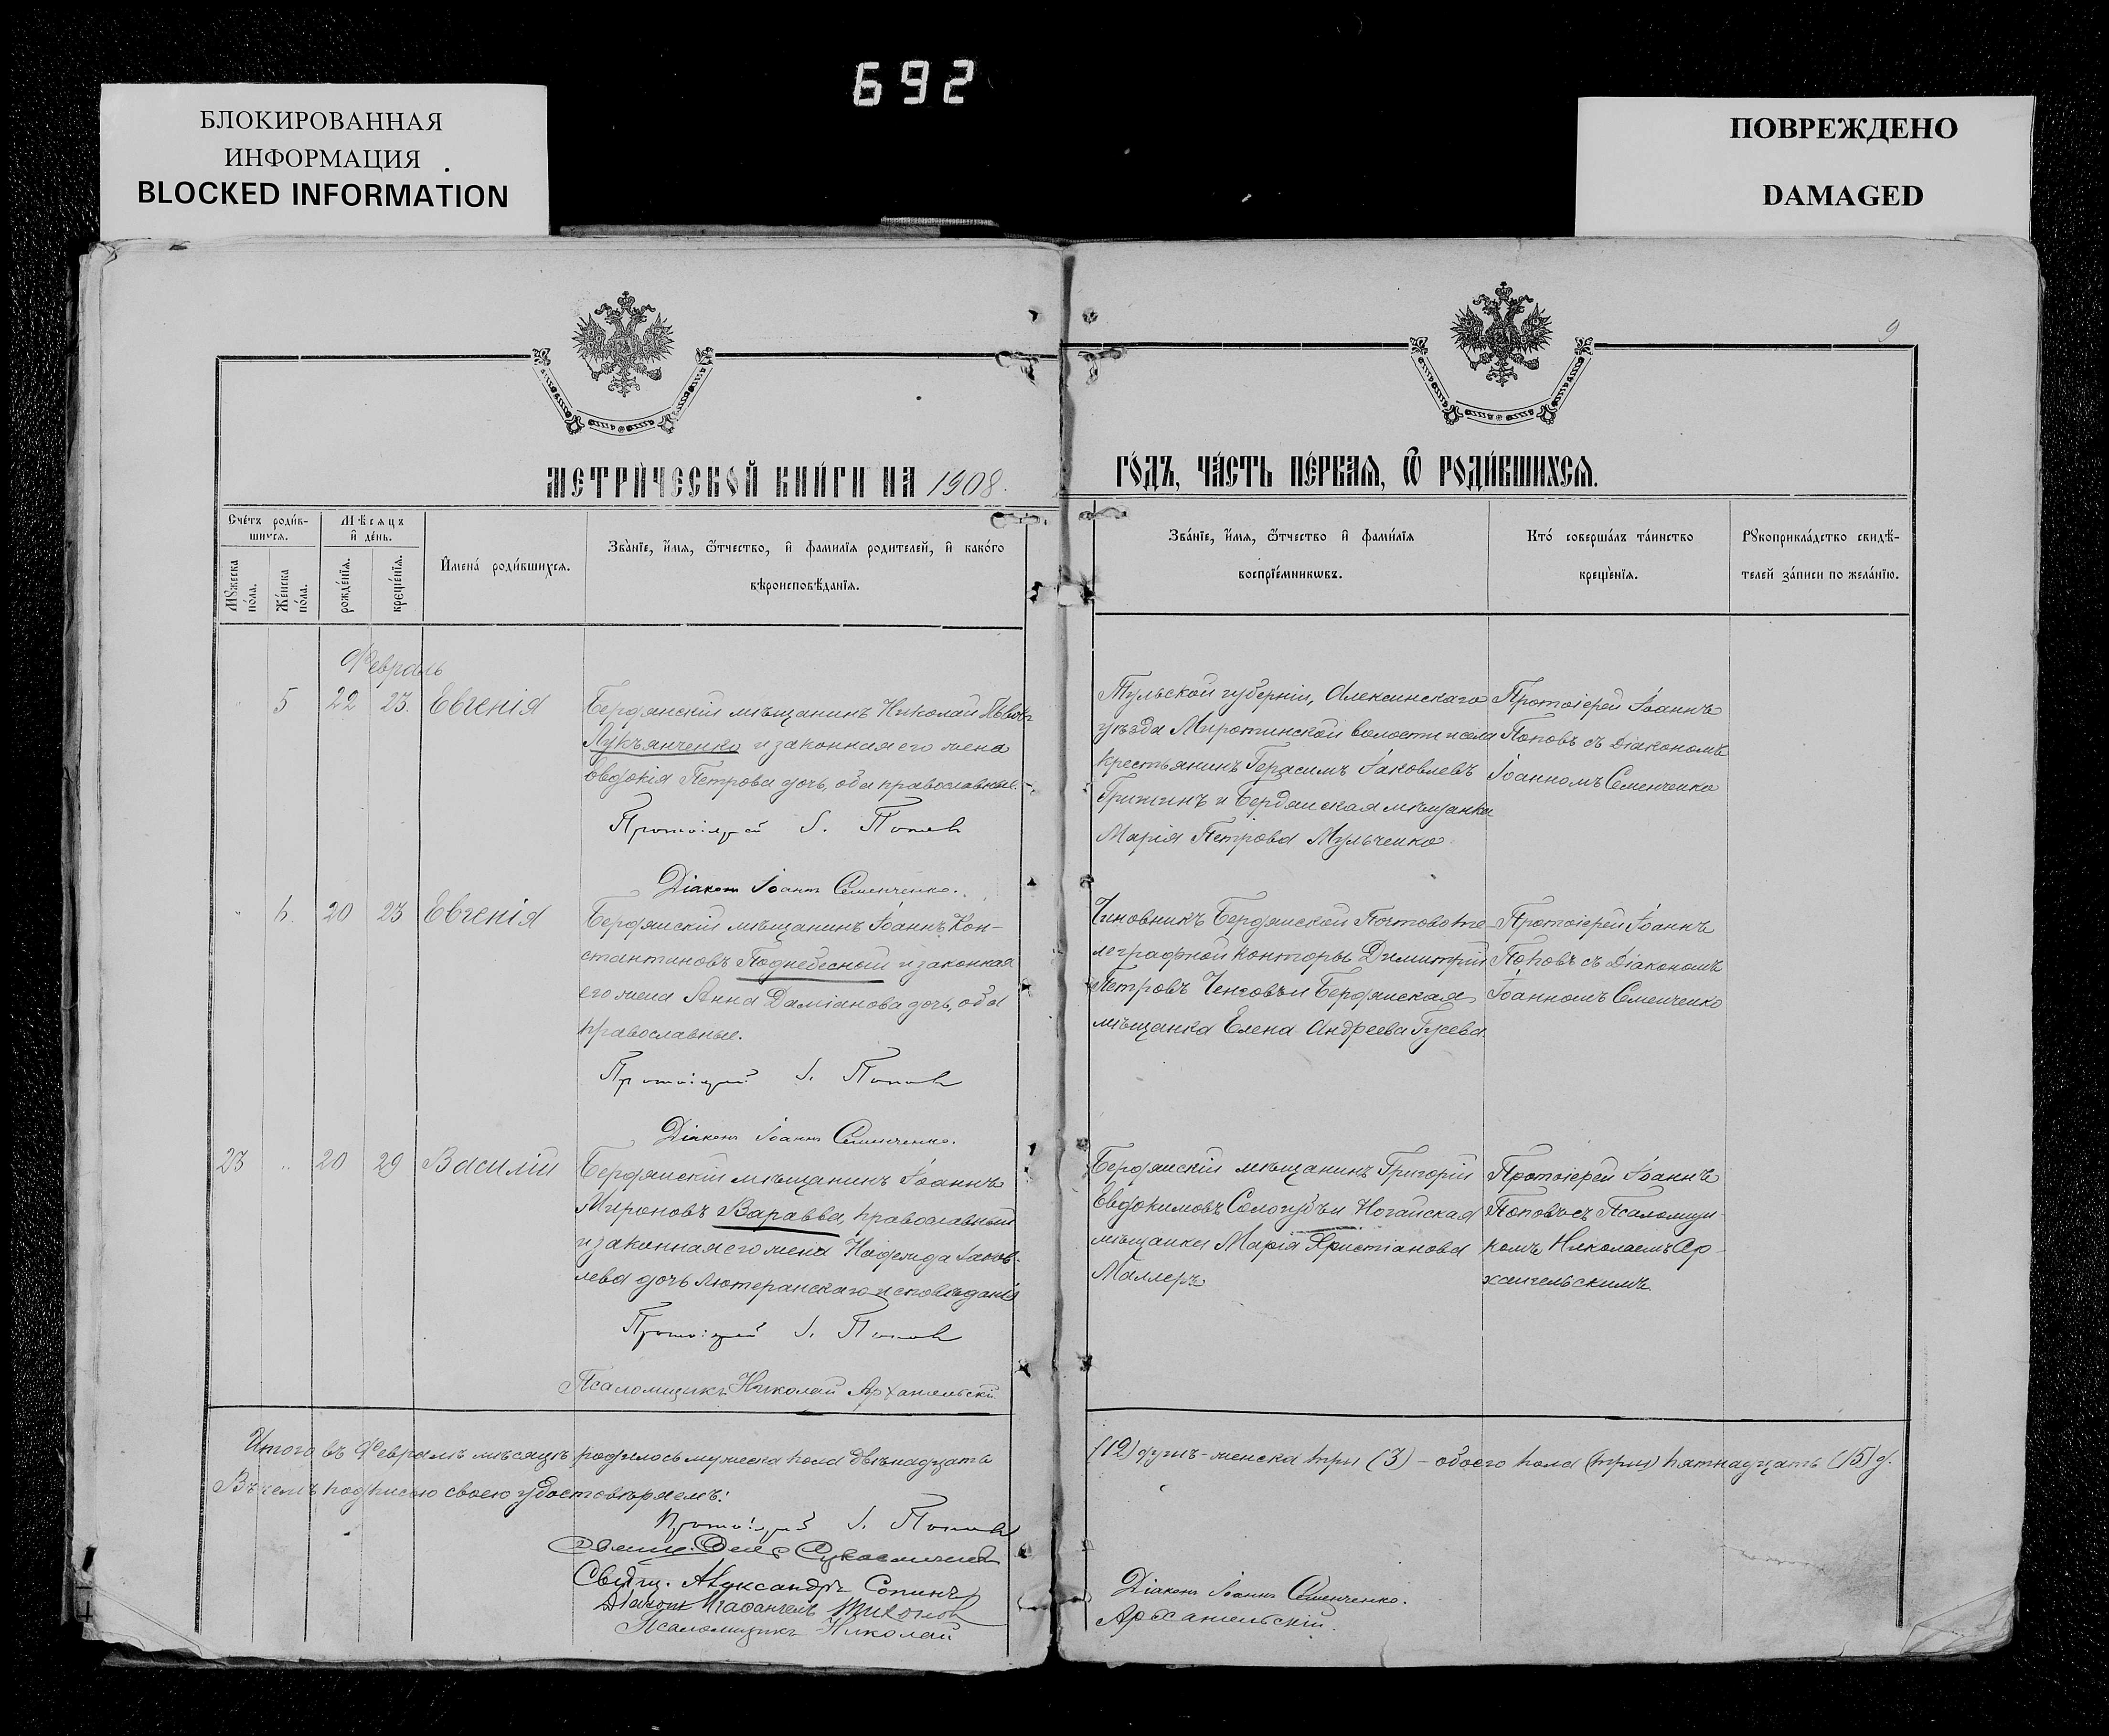 692
БЛОКИРОВАННАЯ
ИНФОРМАЦИЯ
BLOCKED INFORMATION
ПОВРЕЖДЕНО
DAMAGED
9
МЕТРИЧЕСКОЙ КНИГИ НА 1908.
ГОДЪ, ЧАСТЬ ПЕРВАЯ, Ѿ РОДИВШИХСЯ.
Счетъ родив-
шихся.
Мужеска
пола.
Женска
пола.
Мѣсяцъ
и день.
рожденїя.
крещенїя.
Имена родившихся.
Званїе, имя, ѿтчество, и фамилїя родителей, и какого
вѣроисповѣданїя.
Званїе, имя, ѿтчество и фамилїя
воспрїемниковъ.
Кто совершалъ таинство
крещенїя.
Рукоприкладство свидѣ-
телей записи по желанїю.
Февраль
5 22 23. Евгенія
Бердянскій мѣщанинъ Николай Львовъ
Лукьянченко и законная его жена
Евдокія Петрова дочь, оба православные.
Протоіерей І. Поповъ
Діаконъ Іоаннъ Семенченко.
Тульской губерніи, Алексинскаго
уѣзда Миротинской волости и села
крестьянинъ Герасимъ Іаковлевъ
Гришинъ и Бердянская мѣщанка
Марія Петрова Мульченко
Протоіерей Іоаннъ
Поповъ съ Діакономъ
Іоанномъ Семенченко
6. 20 23 Евгенія
Бердянскій мѣщанинъ Іоаннъ Кон-
стантиновъ Поднебесный и законная
его жена Анна Даміанова дочь, оба
православные.
Протоіерей І. Поповъ
Діаконъ Іоаннъ Семенченко.
Чиновникъ Бердянской Почтово те-
леграфной конторы Димитрій
Петровъ Ченговъ и Бердянская
мѣщанка Елена Андреева Гусева.
Протоіерей Іоаннъ
Поповъ съ Діакономъ
Іоанномъ Семенченко
23 „ 20 29 Василій
Бердянскій мѣщанинъ Іоаннъ
Мироновъ Варавва, православный
и законная его жена Надежда Іаков-
лева дочь лютеранскаго исповѣданія
Протоіерей І. Поповъ
Псаломщикъ Николай Архангельскій
Бердянскій мѣщанинъ Григорій
Евдокимовъ Сологубъ и Ногайская
мѣщанка Марія Христіанова
Маллеръ
Протоіерей Іоаннъ
Поповъ съ Псаломщи-
комъ Николаемъ Ар-
хангельскимъ
Итого въ Февралѣ мѣсяцѣ родилось мужеска пола двѣнадцать
(12) душъ - женска три (3) - обоего пола (три) пятнадцать (15) д.
Въ чемъ подписью своею удостовѣряемъ:
Протоіерей І. Поповъ
Свящ. Александръ Сопинъ
Діаконъ
Псаломщикъ Николай
Діаконъ Іоаннъ Семенченко.
Архангельскій.